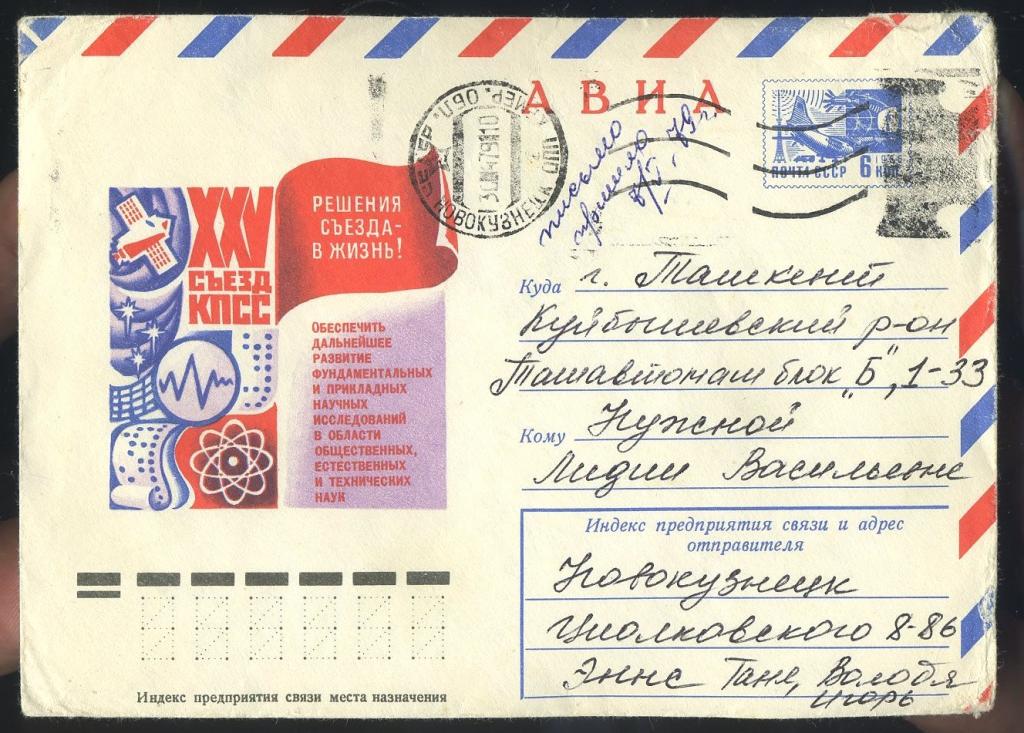 АВИА
ПОЧТА СССР 6 КОП
НОВОКУЗНЕЦК
КЕМЕР. ОБЛ.
письмо
79г.
XXV
СЪЕЗД
КПСС
РЕШЕНИЯ
СЪЕЗДА-
В ЖИЗНЬ!
ОБЕСПЕЧИТЬ
ДАЛЬНЕЙШЕЕ
РАЗВИТИЕ
ФУНДАМЕНТАЛЬНЫХ
И ПРИКЛАДНЫХ
НАУЧНЫХ
ИССЛЕДОВАНИЙ
В ОБЛАСТИ
ОБЩЕСТВЕННЫХ,
ЕСТЕСТВЕННЫХ
И ТЕХНИЧЕСКИХ
НАУК
Куда г. Ташкент
Куйбышевский р-он
Ташавтомаш блок „Б", 1-33
Кому Нужной
Лидии Васильевне
Индекс предприятия связи и адрес
отправителя
Новокузнецк
Циолковского 8-86
Эннс Таня, Володя
Игорь
Индекс предприятия связи места назначения